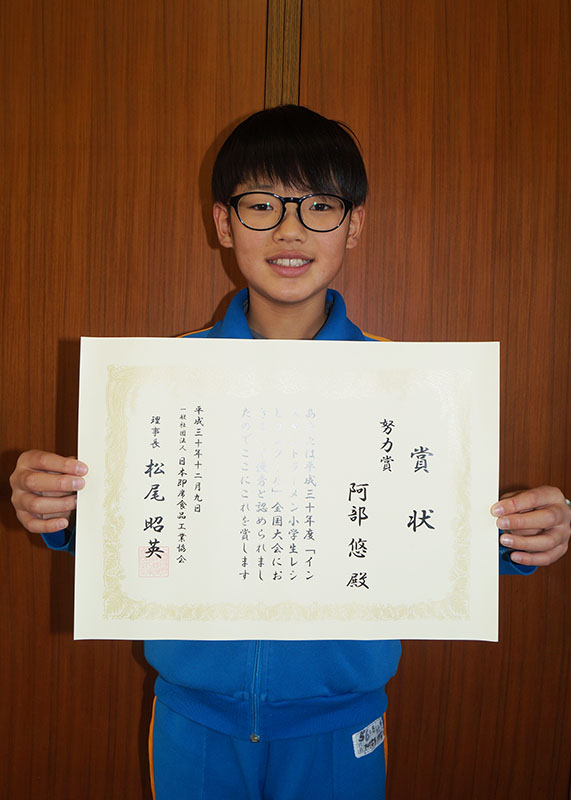 賞状
努力賞
阿部 悠 殿
は平成三十年度「イン
ラーメン小学生レシ
」全国大会にお
優秀と認められまし
たのでここにこれを賞します
平成三十年十二月九日
一般社団法人 日本即席食品工業協会
理事長 松尾 昭英